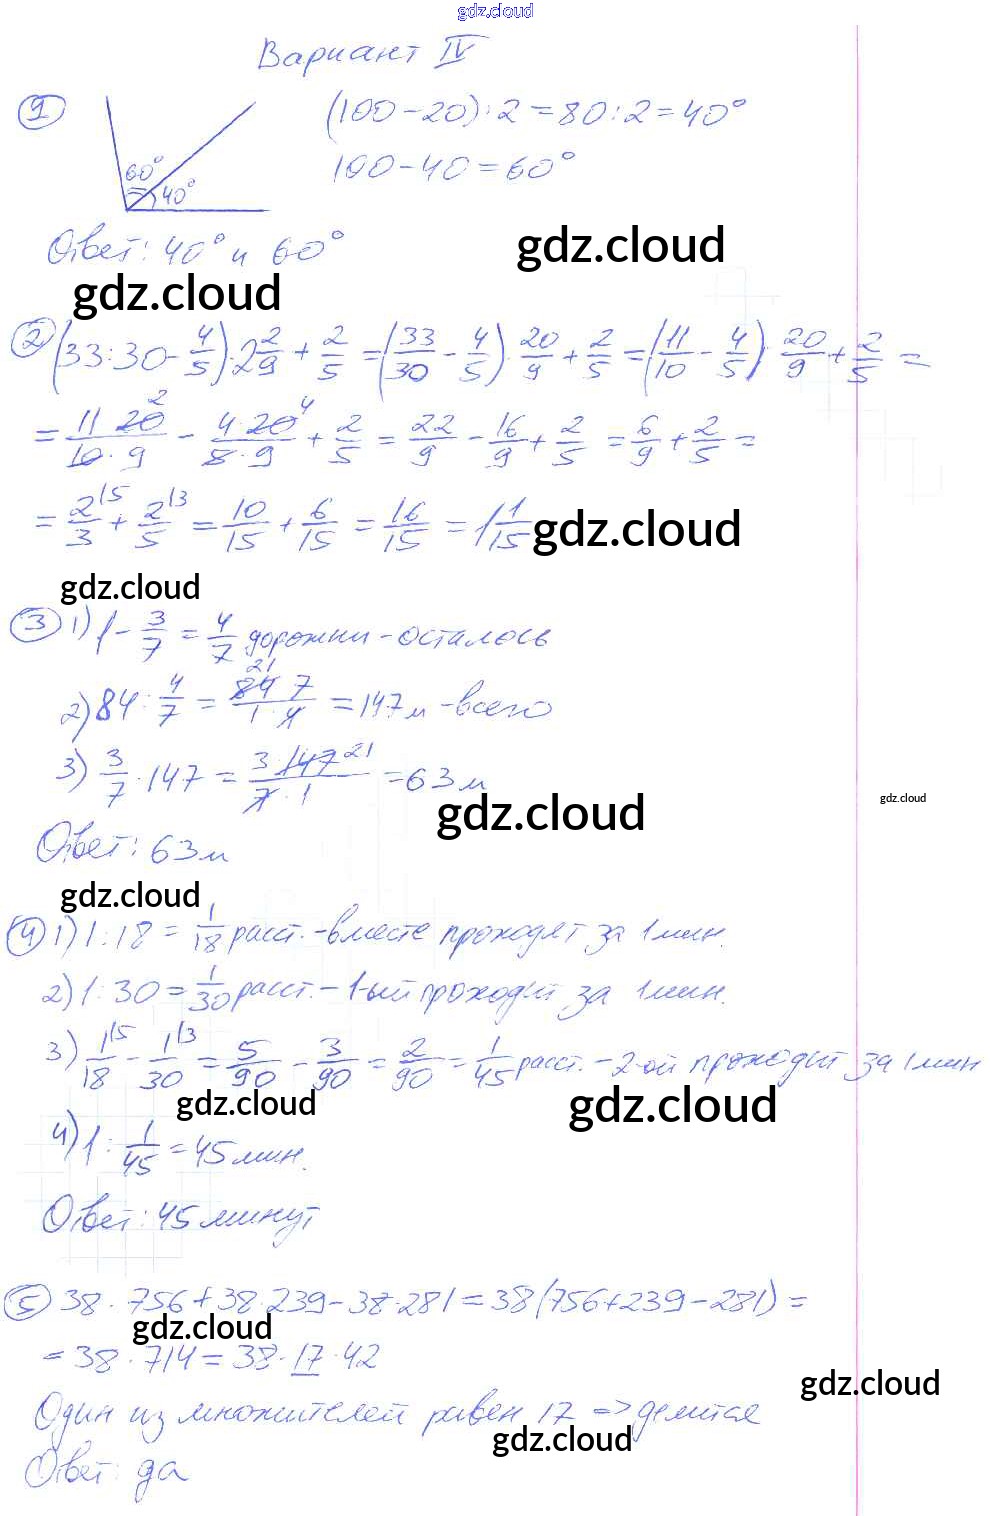 gdz.cloud
Вариант IV
1 (100-20):2=80:2=40°
100-40=60°
60°
40°
Ответ: 40° и 60°
gdz.cloud
gdz.cloud
2 (33:30-4/5)·2 2/9+2/5=(33/30-4/5)·20/9+2/5=(11/10-4/5)·20/9+2/5=
=11·20/10·9-4·20/5·9+2/5=22/9-16/9+2/5=6/9+2/5=
=2/3+2/5=10/15+6/15=16/15=1 1/15
gdz.cloud
gdz.cloud
3 1) 1-3/7=4/7 дорожки-осталось
2) 84:4/7=84·7/1·4=147м-всего
3) 3/7·147=3·147/7·1=63м
gdz.cloud
gdz.cloud
Ответ: 63м
gdz.cloud
4 1) 1:18=1/18 расст.-вместе проходят за 1 мин.
2) 1:30=1/30 расст.-1-ый проходит за 1 мин.
3) 1/18-1/30=5/90-3/90=2/90=1/45 расст.-2-ой проходит за 1 мин
gdz.cloud
gdz.cloud
4) 1:1/45=45мин.
Ответ: 45 минут
5 38·756+38·239-38·281=38(756+239-281)=
gdz.cloud
=38·714=38·17·42
gdz.cloud
Один из множителей равен 17 => делится
gdz.cloud
Ответ: да